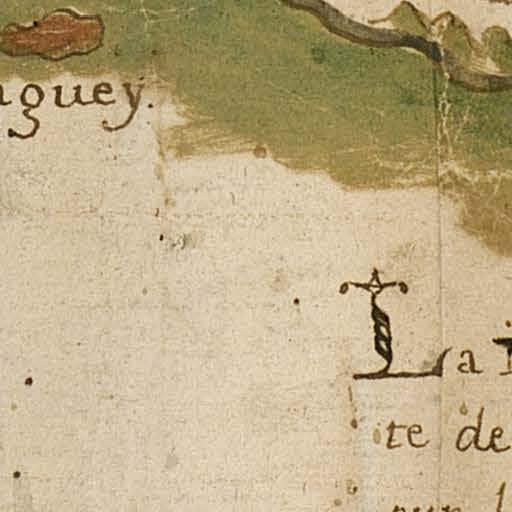 guey.
La
te de